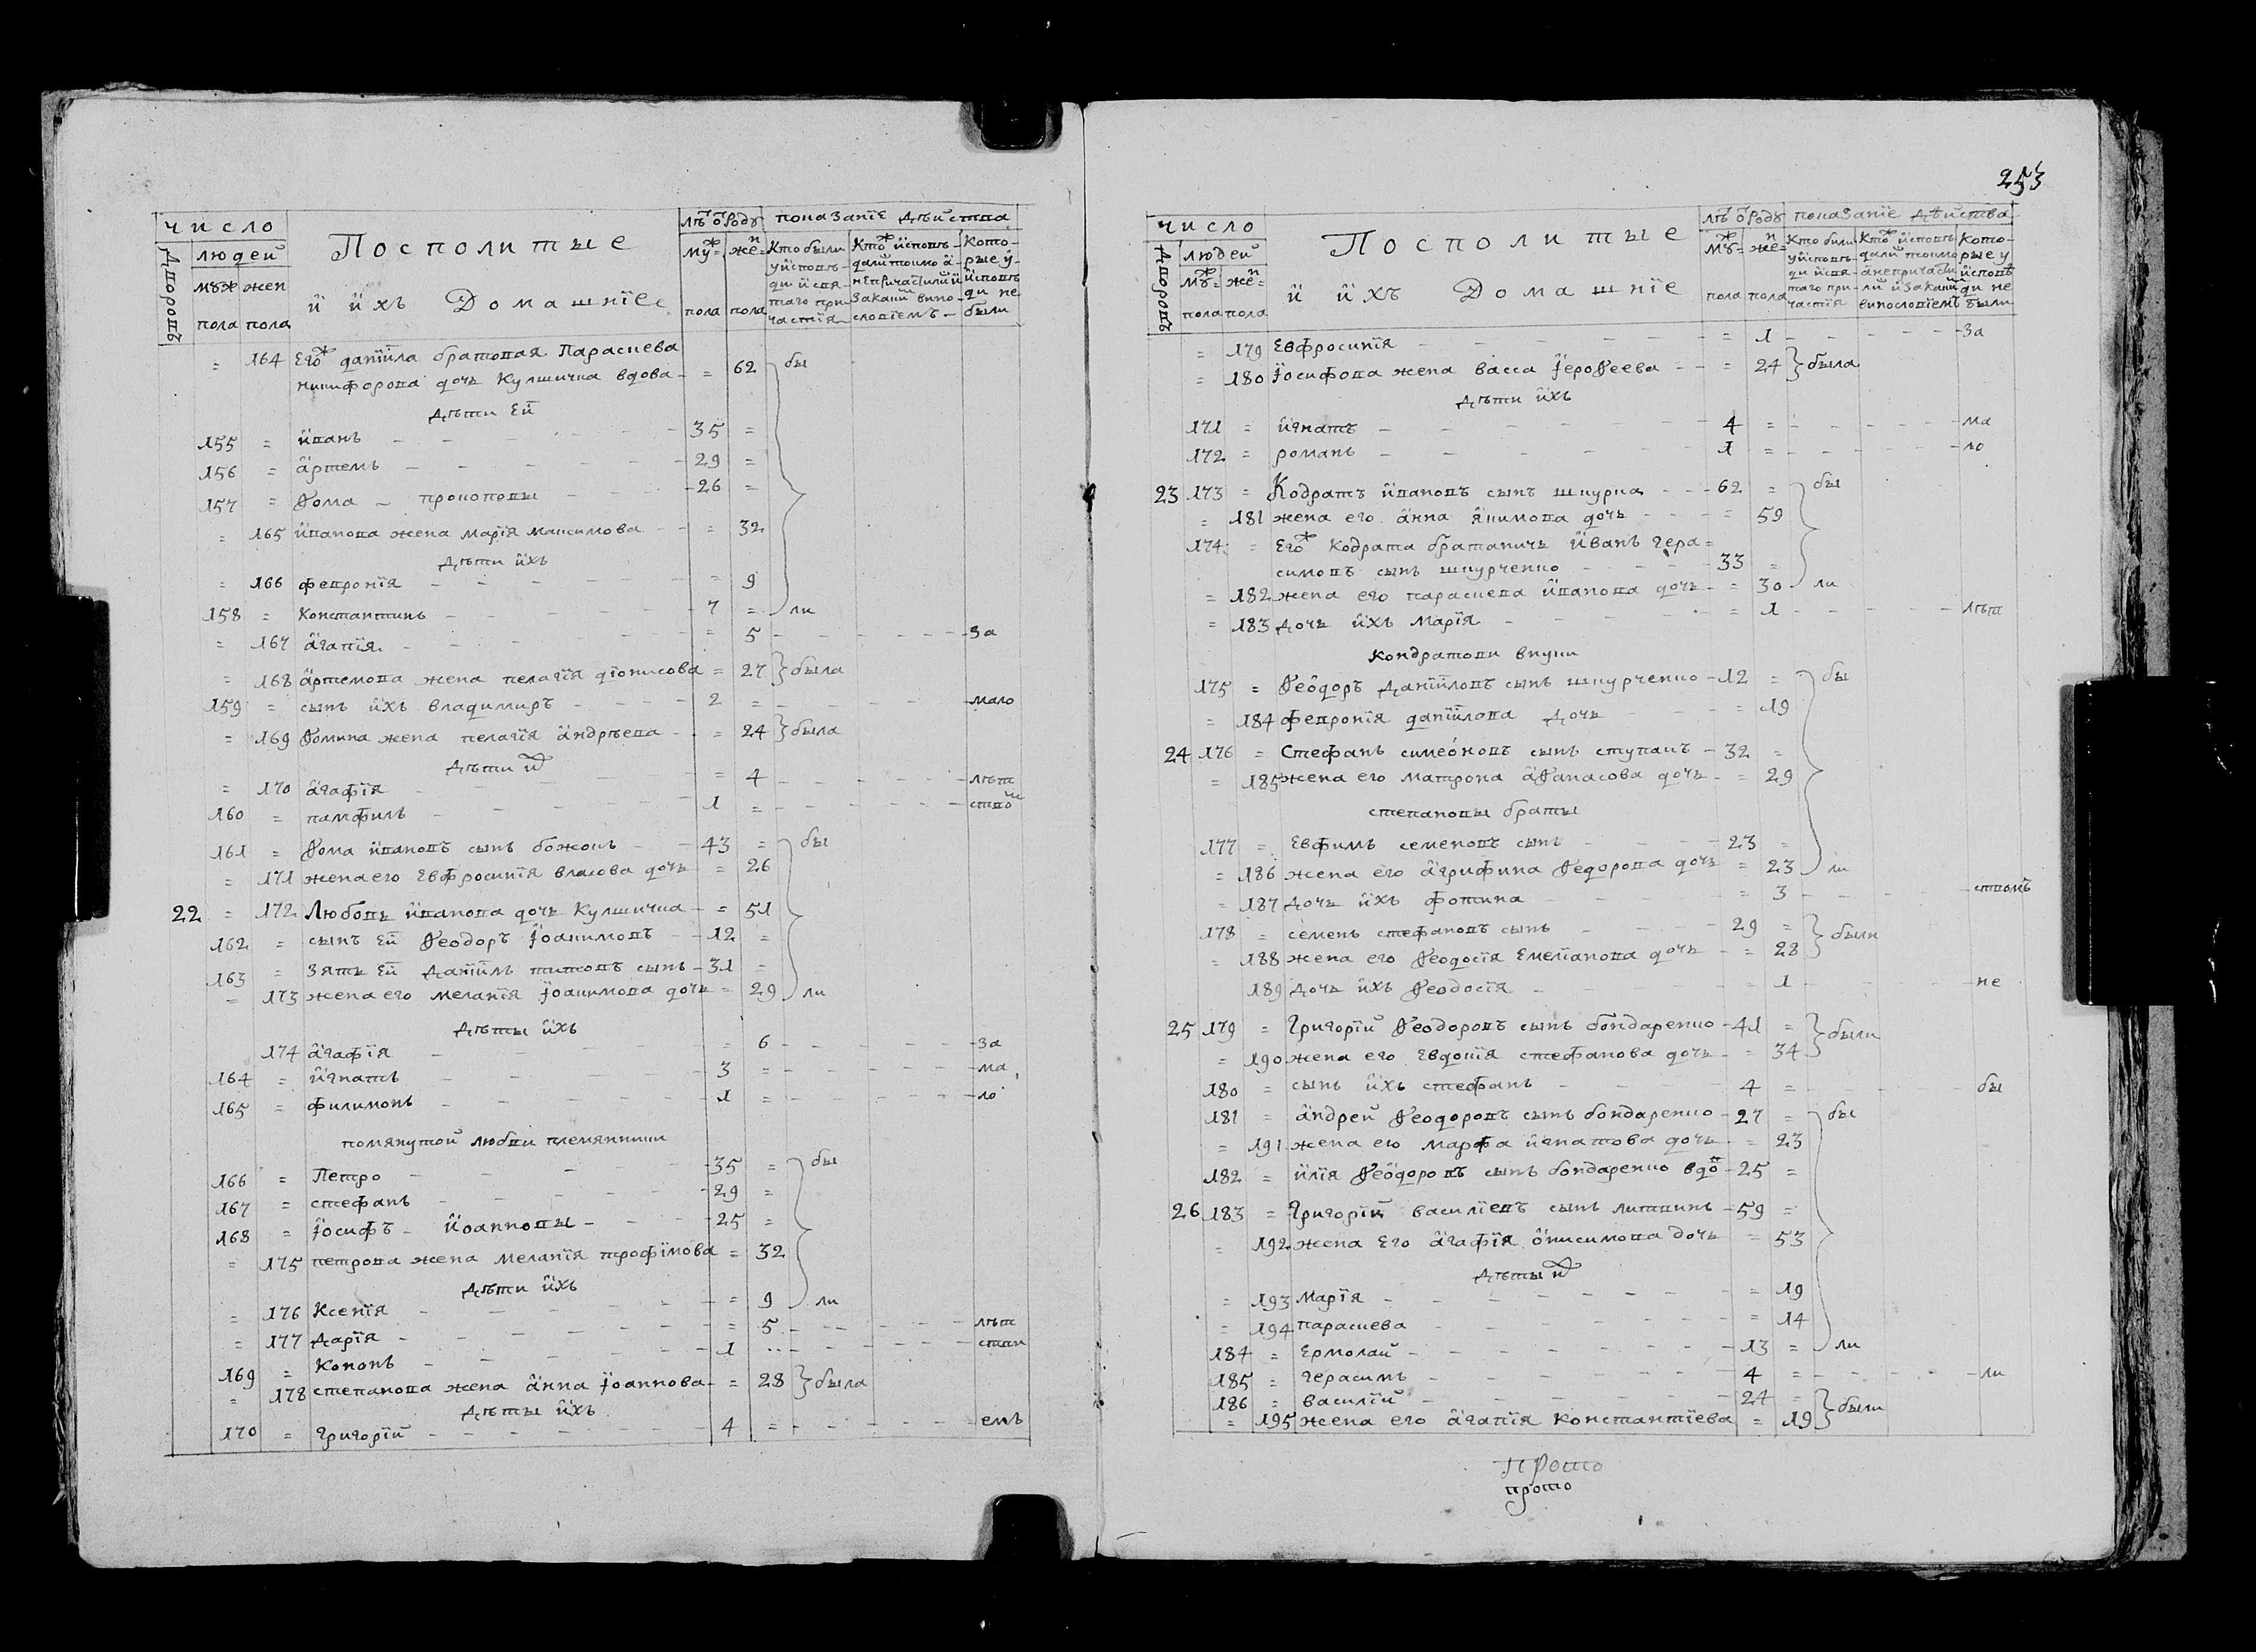 число
Дворовъ
людей
муж жен
пола пола
Посполитые
и ихъ Домашнїе
лѣт ѿ роду
муж= жен=
пола пола
показанїе дѣйства
Кто были у исповѣди и святаго причастїя
Кто ж исповѣдали токмо а не причастили и за каким винословїем
Которые у исповѣди не были
= 164 Его ж данїила братовая Параскева
никифорова дочь Кулшичка вдова = 62 бы
дѣти ей
155 = иванъ 35 =
156 = артемъ 29 =
157 = ѳома прокоповы 26 =
= 165 иванова жена марїя максимова = 32
дѣти ихъ
= 166 февронїя = 9
158 = константинъ 7 = ли
= 167 агапїя = 5 за
= 168 артемова жена пелагїя дїонисова = 27 была
159 = сынъ ихъ владимиръ 2 = мало
= 169 ѳомина жена пелагїя андрѣева = 24 была
дѣти их
= 170 агафїя = 4 лѣт
160 = памфилъ 1 = ством
161 = ѳома ивановъ сынъ божокъ 43 = бы
= 171 жена его Евфросинїя власова дочь = 26
22 = 172 Любовь иванова дочь Кулшичка = 51
162 = сынъ ей ѳеодоръ їоакимовъ 12 =
163 = зять ей данїилъ титовъ сынъ 31 =
= 173 жена его меланїя їоакимова дочь = 29 ли
дѣты ихъ
174 агафїя = 6 за
164 = игнатъ 3 = ма
165 = филимонъ 1 = ло
помянутой любви племянники
166 = Петро 35 = бы
167 = стефанъ 29 =
168 = їосифъ иоанновы 25 =
= 175 петрова жена меланїя трофїмова = 32
дѣти ихъ
= 176 Ксенїя = 9 ли
= 177 дарїя = 5 лѣт
169 = кононъ 1 стви
= 178 степанова жена анна їоаннова = 28 была
дѣты ихъ
170 = григорїй 4 = емъ
253
число
Дворовъ
людей
муж= жен=
пола пола
Посполитые
и ихъ Домашнїе
лѣт ѿ роду
муж= жен=
пола пола
показанїе дѣйства
Кто были у исповѣди и святаго причастїя
Кто ж исповѣдали токмо а не причастили и за каким винословїемъ
Которые у исповѣди не были
= 179 Евфросинїя = 1 за
= 180 їосифова жена васса їероѳеева = 24 была
дѣти ихъ
171 = игнатъ 4 = ма
172 = романъ 1 = ло
23 173 = Кодратъ ивановъ сынъ шкурка 62 = бы
= 181 жена его анна якимова дочь = 59
174 = Его ж кодрата братаничъ иванъ гера=
симовъ сынъ шкурченко 33 =
= 182 жена его параскева иванова дочь = 30 ли
= 183 дочь ихъ марїя = 1 лѣт
кондратови внуки
175 = ѳеодоръ данїиловъ сынъ шкурченко 12 = бы
= 184 февронїя данїилова дочь = 19
24 176 = Стефанъ симеоновъ сынъ ступакъ 32 =
= 185 жена его матрона аѳанасова дочь = 29
степановы браты
177 = Евфимъ семеновъ сынъ 23 =
= 186 жена его агрифина ѳедорова дочь = 23 ли
= 187 дочь ихъ фотина = 3 ствомъ
178 = семенъ стефановъ сынъ 29 = были
= 188 жена его ѳеодосїя Емелїанова дочь = 28
189 дочь ихъ ѳеодосїя 1 не
25 179 = Григорїй ѳеодоровъ сынъ бондаренко 41 = были
= 190 жена его Евдокїя стефанова дочь = 34
180 = сынъ ихъ стефанъ 4 = бы
181 = андрей ѳеодоровъ сынъ бондаренко 27 = бы
= 191 жена его марфа игнатова дочь = 23
182 = илїя ѳеодоровъ сынъ бондаренко вдов 25 =
26 183 = Григорїй василїевъ сынъ литвинъ 59 =
= 192 жена Его агафїя онисимова дочь = 53
дѣты их
= 193 марїя = 19
= 194 параскева = 14
184 = Ермолай 13 = ли
185 = герасимъ 4 = ли
186 = василїй 24 = были
= 195 жена его агапїя константїева = 19
прото
прото